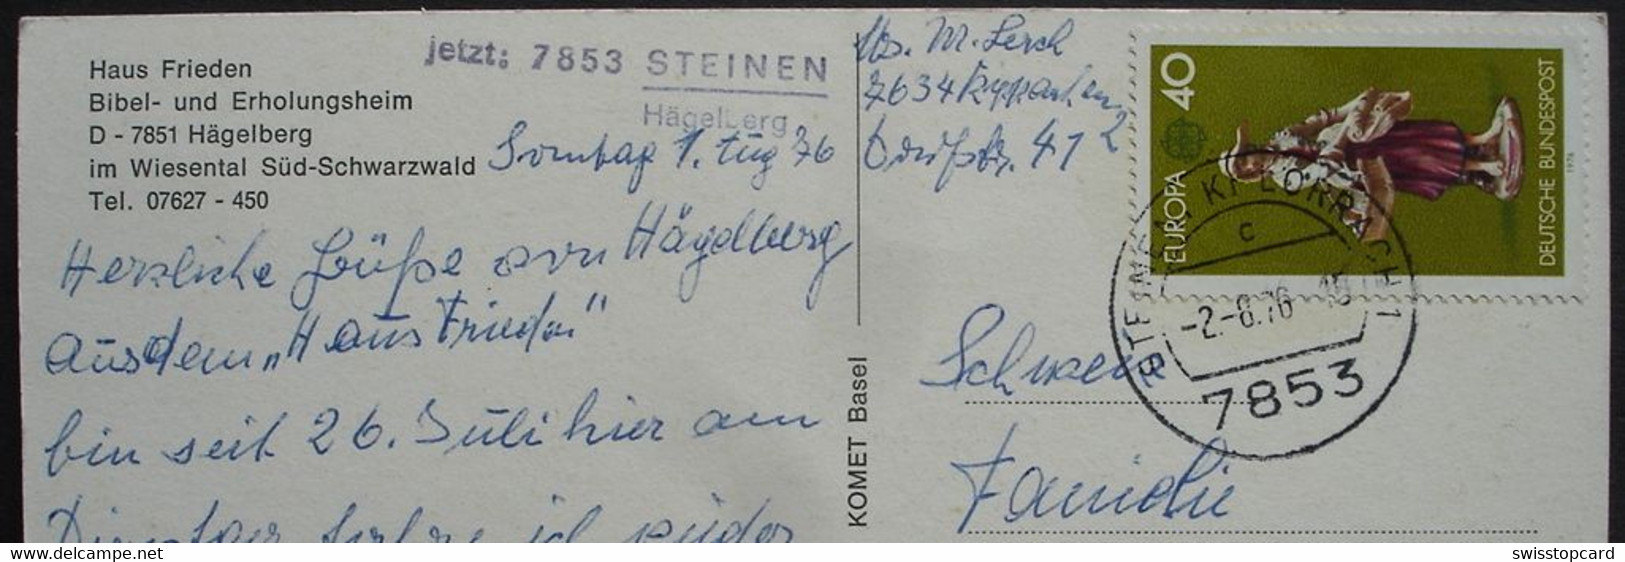 Haus Frieden
Bibel- und Erholungsheim
D - 7851 Hägelberg
im Wiesental Süd-Schwarzwald
Tel. 07627 - 450
jetzt: 7853 STEINEN
Hägelberg
Sonntag 1. Aug 76
Herzliche Grüße von Hägelberg
aus dem „Haus Frieden"
bin seit 26. Juli hier am
Dienstag fahre ich wieder
KOMET Basel
Abs. M. Lerch
7634 Kippenheim
41
Schweiz
Familie
40
EUROPA
DEUTSCHE BUNDESPOST
1976
STEINEN KR LÖRRACH 1
c
-2.-8.76 -18
7853
Max Height: 1200px Max Width: 1625px
swisstopcard